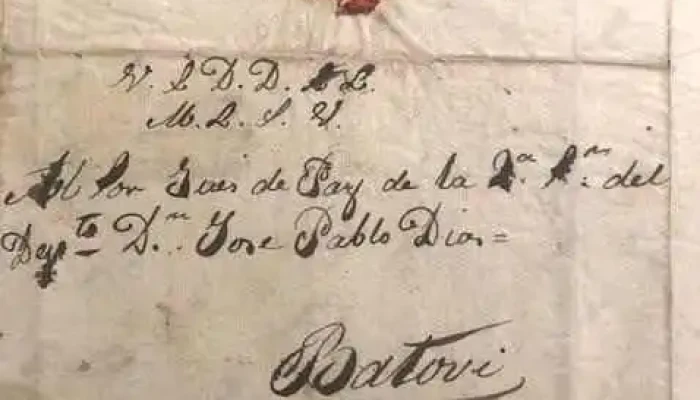 V. L D. D. L L.
M. L. S. V.
Al Sor Jues de Paz de la 2.ª S.ⁿ del
Depto D.ⁿ Jose Pablo Dias=
Batovi